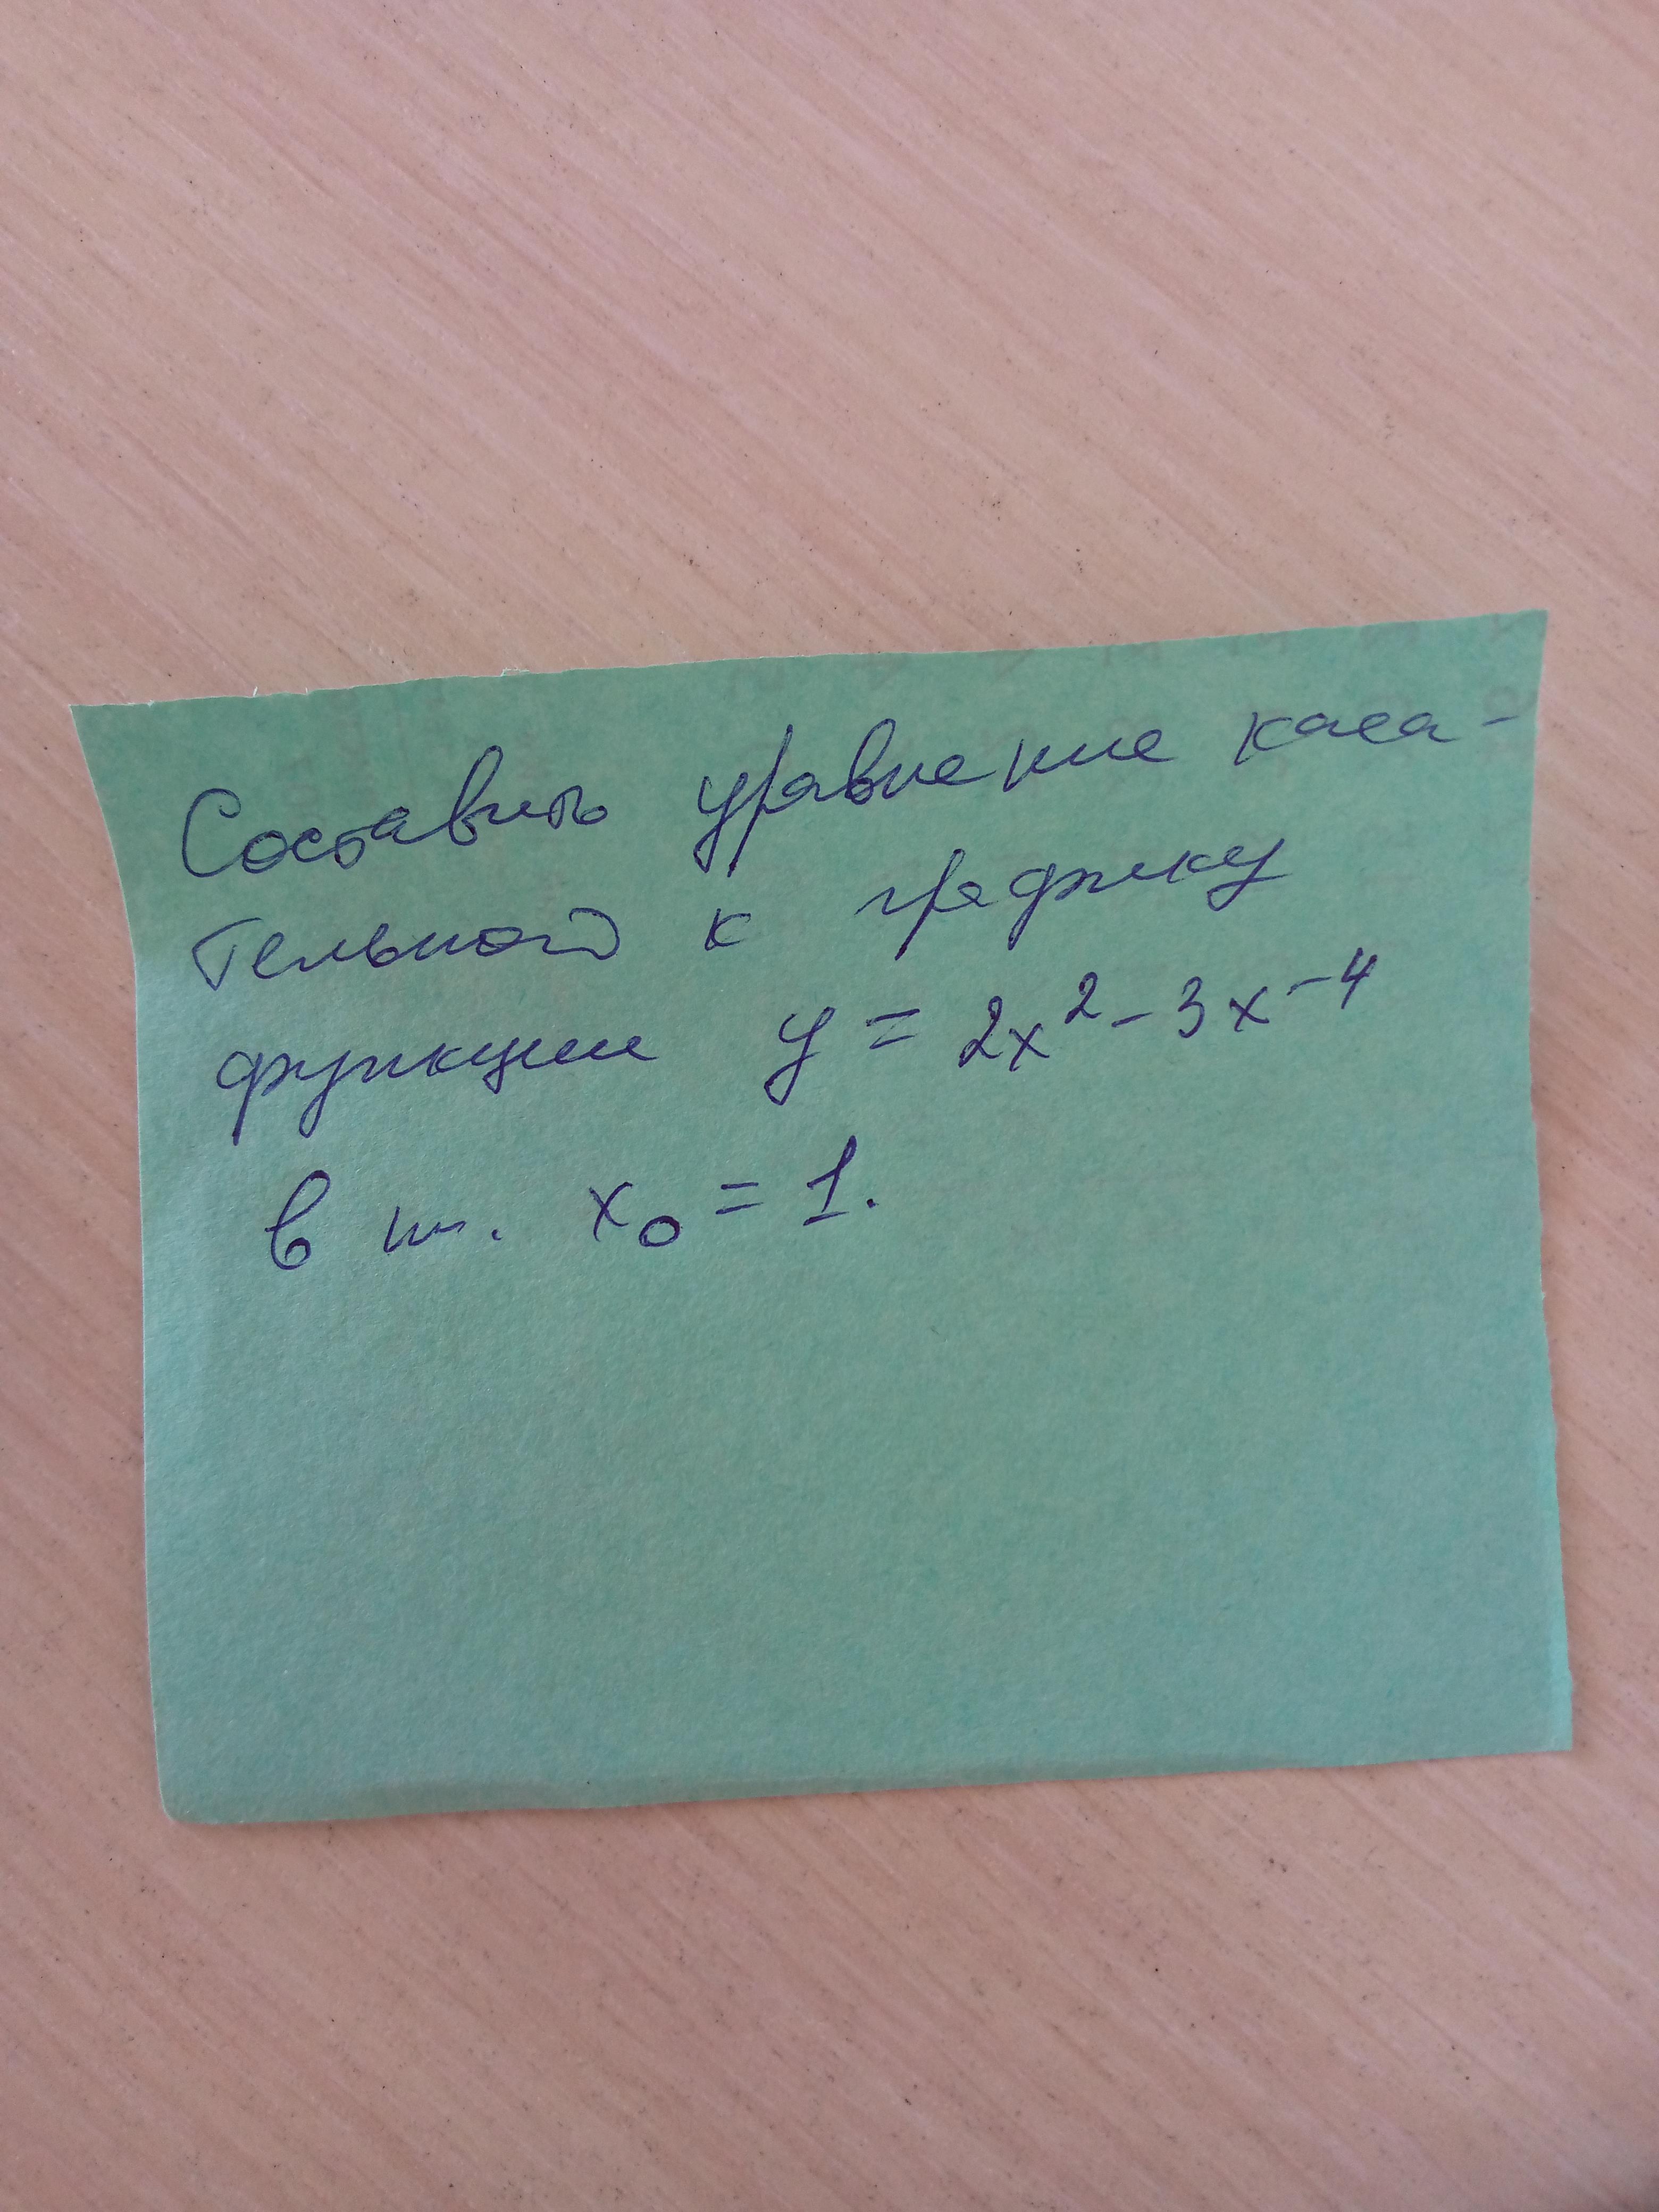 Составить уравнение каса-
тельной к графику
функции y = 2x² - 3x⁻⁴
в т. x₀ = 1.